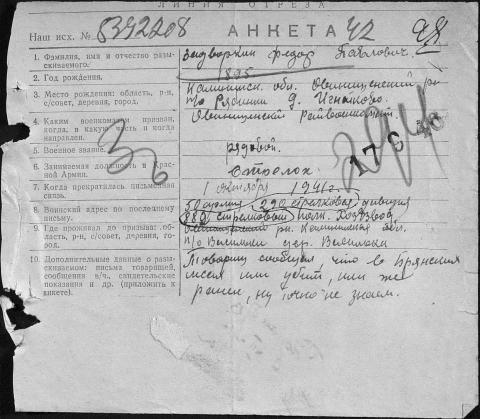 ЛИНИЯ ОТРЕЗА
Наш исх. № 5392208 АНКЕТА 42
1. Фамилия, имя и отчество разы-
скиваемого. Задворкин Федор Павлович.
2. Год рождения. 1895
3. Место рождения: область, р-н, Калининск. обл. Овинищенский р-н
с/совет, деревня, город. п/о Рядчины д. Игнаково.
4. Каким военкоматом призван, Овинищенский Райвоенкомат.
когда, в какую часть и когда
направлен.
5. Военное звание. рядовой.
6. Занимаемая должность в Крас- Стрелок
ной Армии.
7. Когда прекратилась письменная 1 октября 1941 г.
связь.
8. Воинский адрес по последнему 50 армия 290 стрелковая дивизия
письму. 882 стрелковый полк
9. Где проживал до призыва: область, Овинищенский р-н Калининская обл.
р-н, с/совет, деревня, го-
род.
10. Дополнительные данные о разы- Товарищ сообщил, что в Брянских
скиваемом: письма товарищей, лесах или убит, или же
сообщения в/ч., свидетельские ранен, ну точно не знаем.
показания и др. (приложить к
анкете).
36
17 6 46